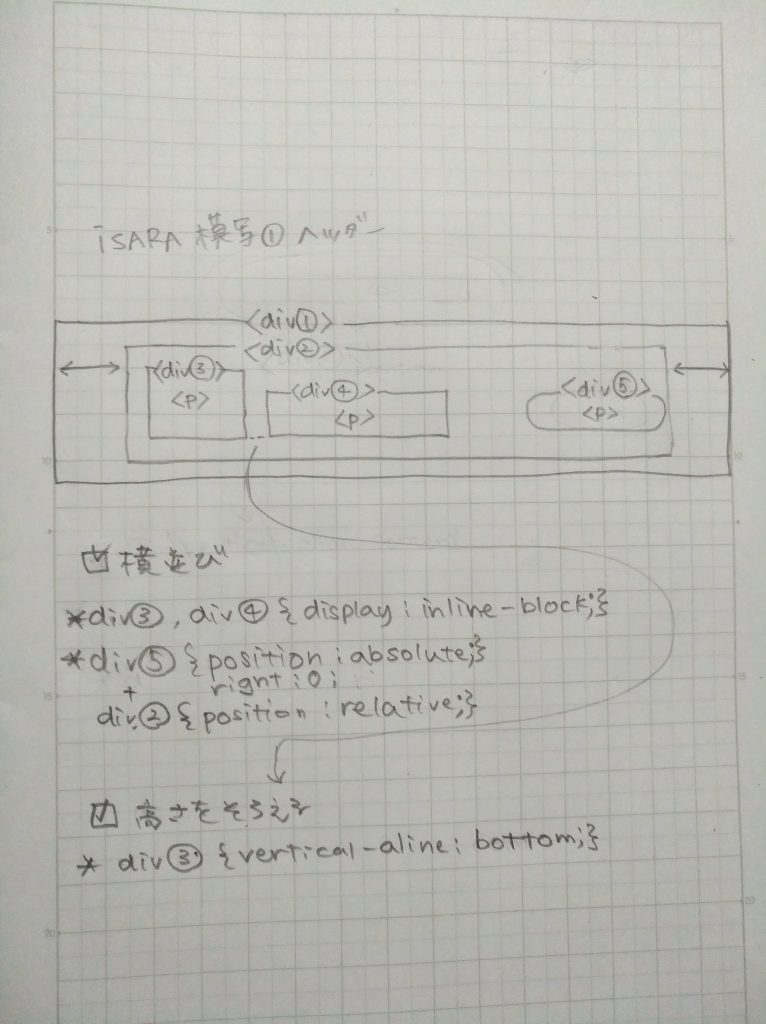 iSARA 模写① ヘッダー
<div①>
<div②>
<div③>
<p>
<div④>
<p>
<div⑤>
<p>
☑ 横並び
*div③, div④ {display: inline-block;}
*div⑤ {position: absolute;}
right: 0;
+
div② {position: relative;}
☑ 高さをそろえる
* div③ {vertical-aline: bottom;}